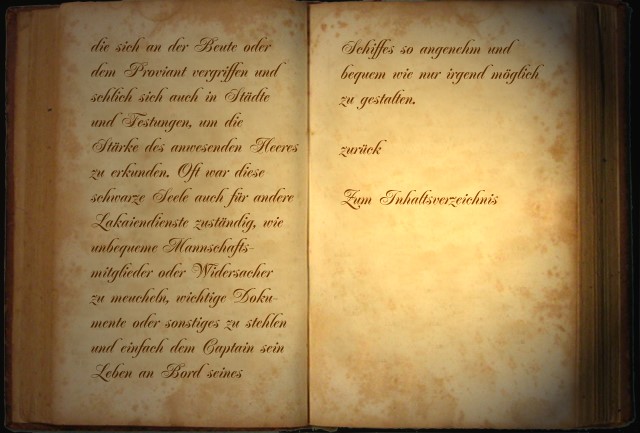 die sich an der Beute oder
dem Proviant vergriffen und
schlich sich auch in Städte
und Festungen, um die
Stärke des anwesenden Heeres
zu erkunden. Oft war diese
schwarze Seele auch für andere
Lakaiendienste zuständig, wie
unbequeme Mannschafts-
mitglieder oder Widersacher
zu meucheln, wichtige Doku-
mente oder sonstiges zu stehlen
und einfach dem Captain sein
Leben an Bord seines
Schiffes so angenehm und
bequem wie nur irgend möglich
zu gestalten.
zurück
Zum Inhaltsverzeichnis